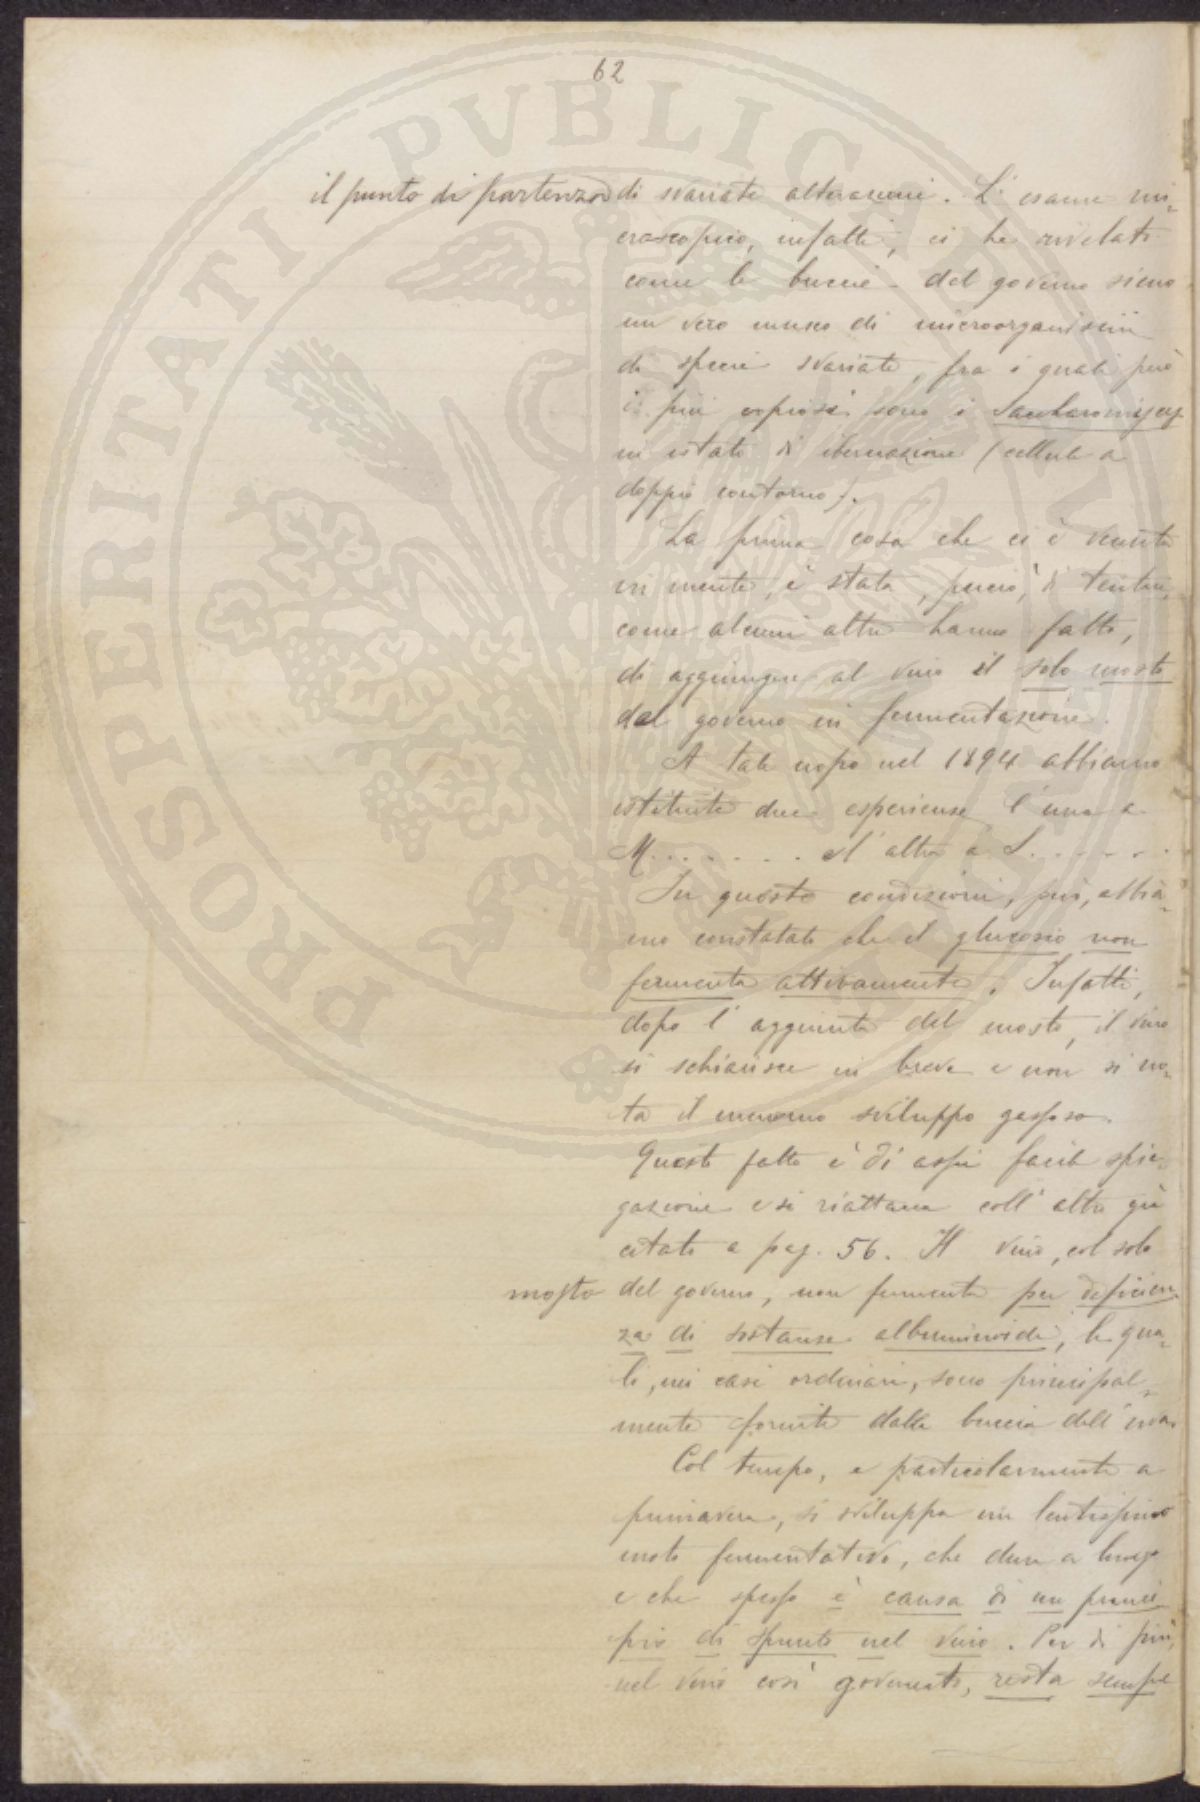 62
PROSPERITATI PVBLICAE
il punto di partenza di svariate alterazioni. L'esame mi-
croscopico, infatti, ci ha rivelato
come le buccie del governo sieno
un vero museo di microorganismi
di specie svariate, fra i quali però
i più copiosi sono i Saccharomyces
in istato di ibernazione (cellule a
doppio contorno).
La prima cosa che ci è venuta
in mente, è stata, perciò, di tentare,
come alcuni altri hanno fatto,
di aggiungere al vino il solo mosto
del governo in fermentazione.
A tale uopo nel 1894 abbiamo
istituite due esperienze l'una a
M....... e l'altra a S......
In queste condizioni, però, abbia-
mo constatato che il glucosio non
fermenta attivamente. Infatti,
dopo l'aggiunta del mosto, il vino
si schiarisce in breve e non si no-
ta il menomo sviluppo gassoso.
Questo fatto è di assai facile spie-
gazione e si riattacca coll'altro già
citato a pag. 56. Il vino, col solo
mosto del governo, non fermenta per deficien-
za di sostanze albuminoidi, le qua-
li, nei casi ordinari, sono principal-
mente fornite dalla buccia dell'uva.
Col tempo, e particolarmente a
primavera, si sviluppa un lentissimo
moto fermentativo, che dura a lungo
e che spesso è causa di un princi-
pio di spunto nel vino. Per di più,
nel vino così governato, resta sempre